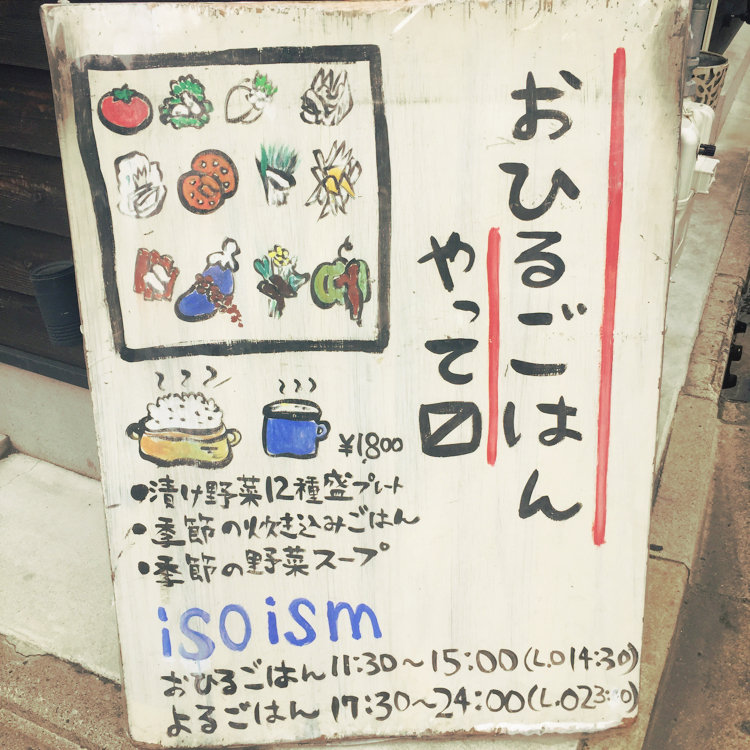 おひるごはん
やって〼
¥1800
•漬け野菜12種盛プレート
•季節の炊き込みごはん
•季節の野菜スープ
isoism
おひるごはん 11:30〜15:00(L.O 14:30)
よるごはん 17:30〜24:00(L.O 23:00)